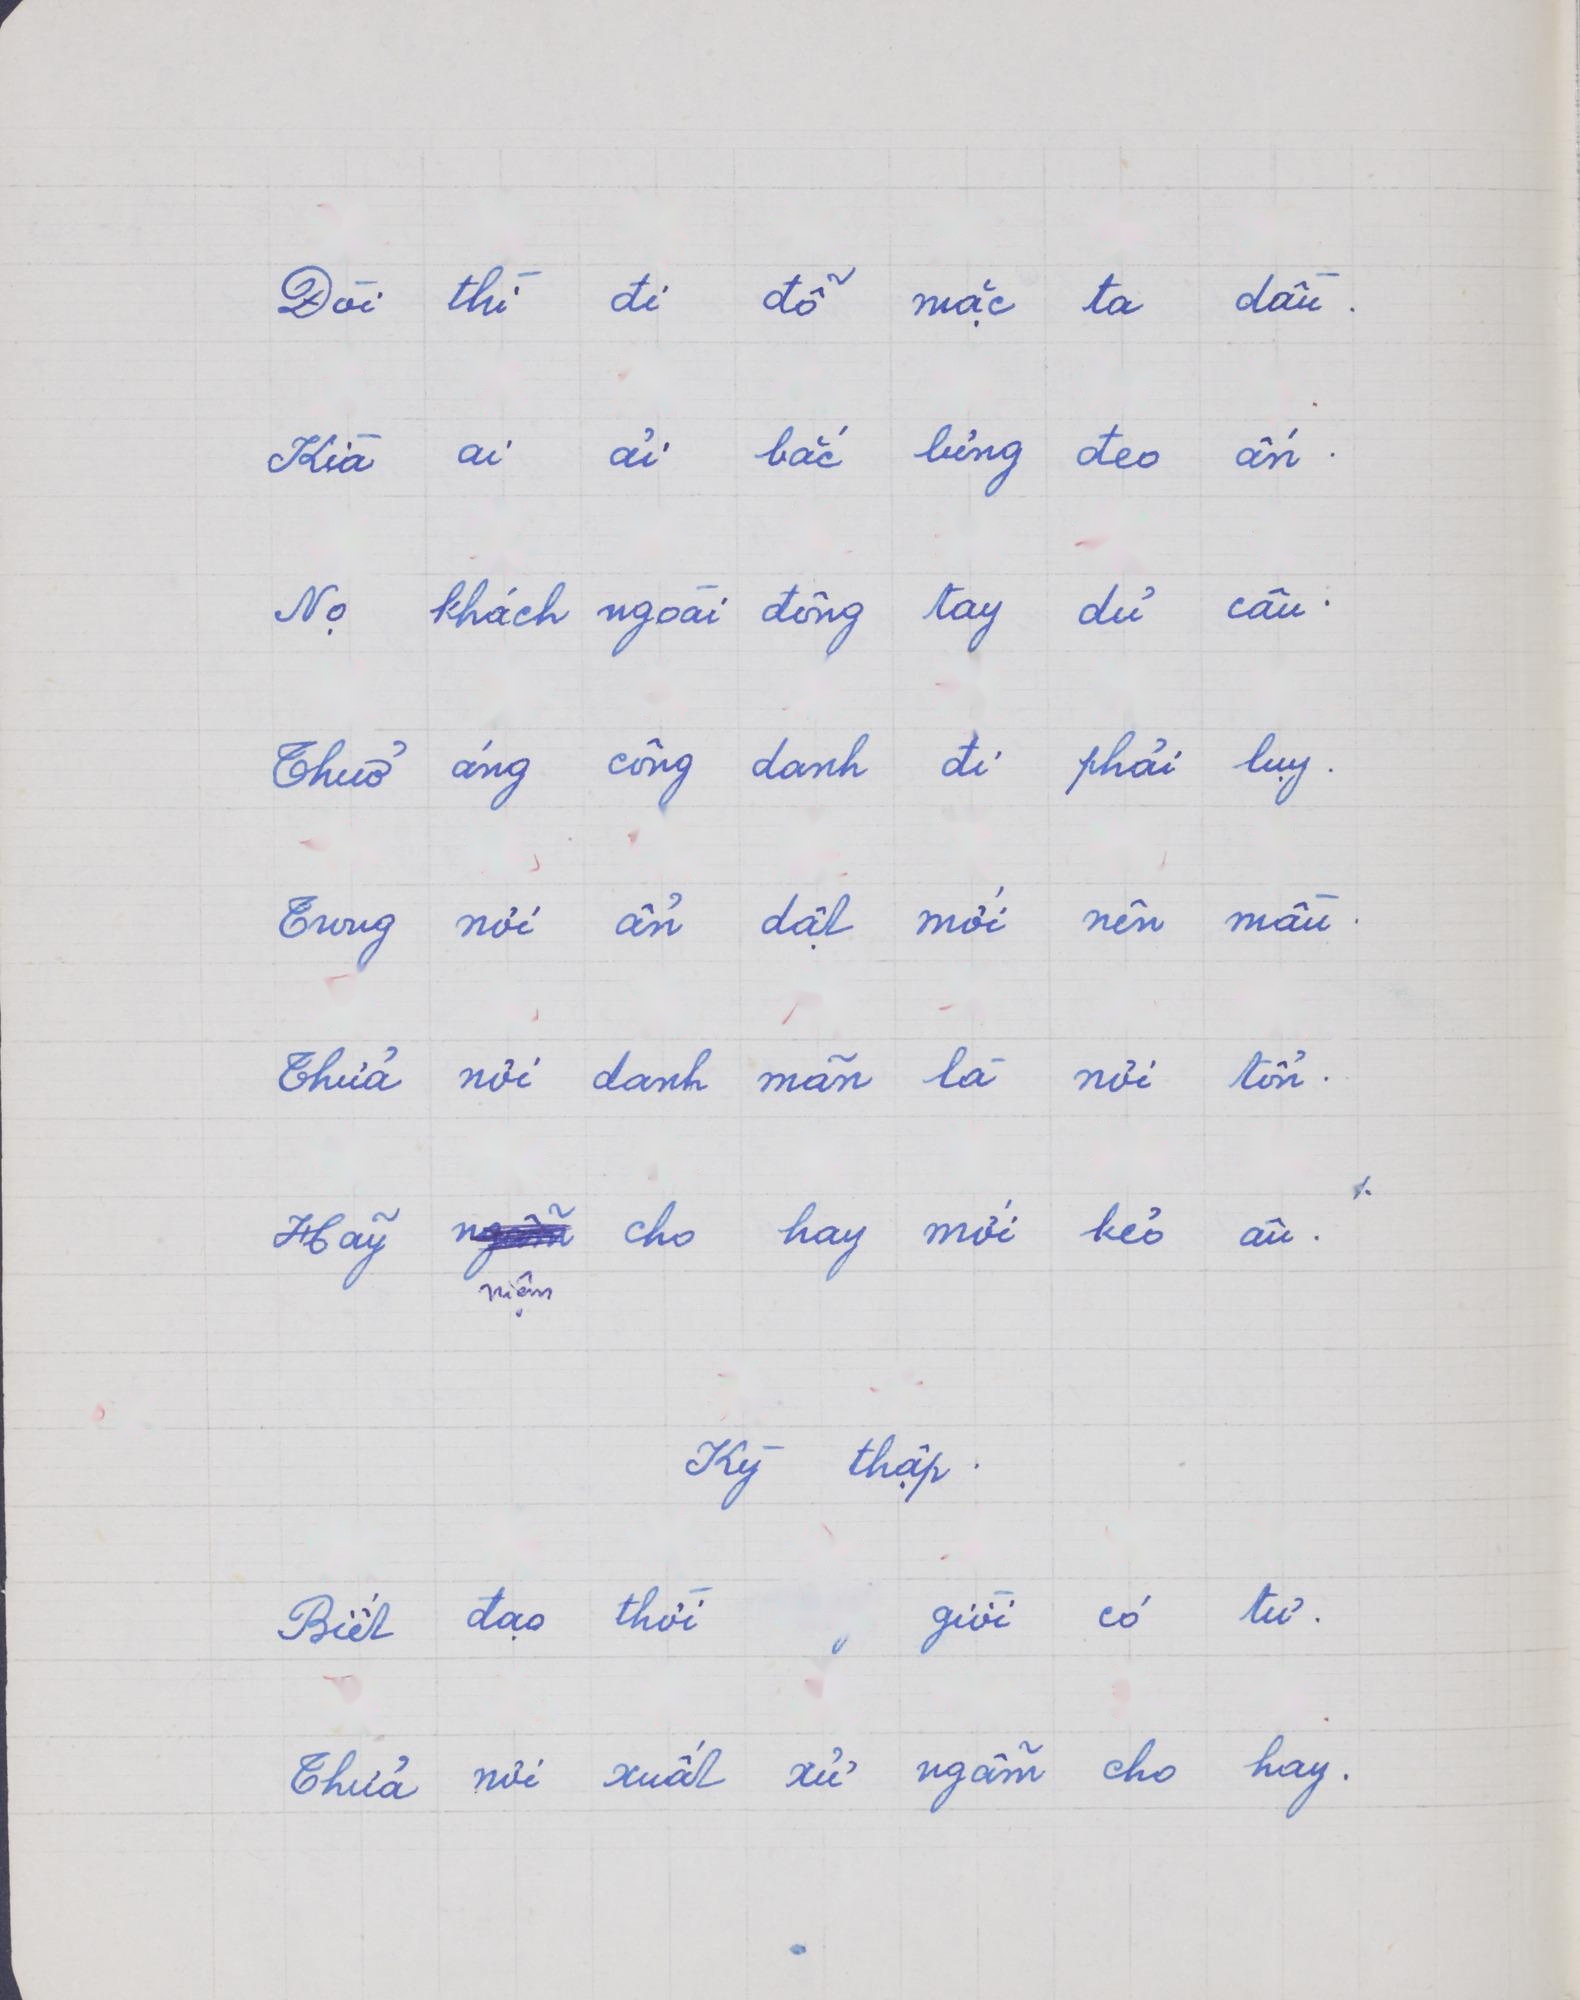 Đòi thì đi đỗ mặc ta dầu.
Kìa ai ải bắc lưng đeo ấn.
Nọ khách ngoài đồng tay dử câu.
Thuở áng công danh đi phải luỵ.
Trong nơi ẩn dật mới nên mầu.
Thửa nơi danh mãn là nơi tổn.
Hãy niệm cho hay mới kẻo âu.
Kỳ thập.
Biết đạo thời giồi có tư.
Thửa nơi xuất xử ngẫm cho hay.